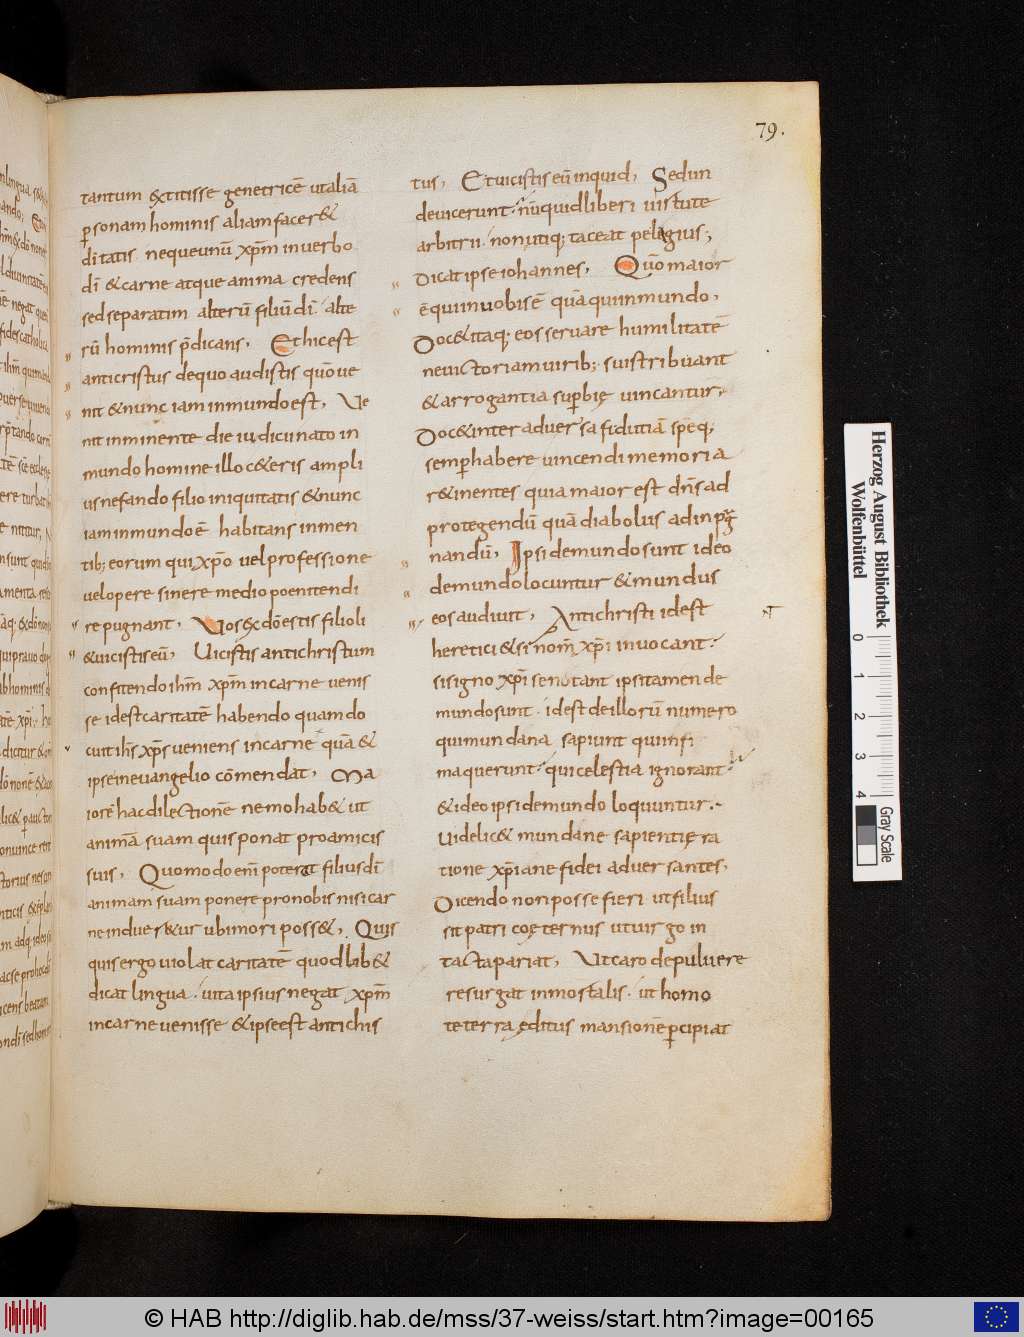 79.
tantum &titisse genetricē ut aliā
p̄sonam hominis aliam facer&
dītatis. neque unū xp̄m in uerbo
dī & carne atque anima credens
sed separatim alterū filiū dī. alte
rū hominis p̄dicans, Et hic est
anticristus de quo audistis quō ue
nit & nunc iam in mundo est, Ve
nit inminente die iudicii nato in
mundo homine illo c&eris ampli
us nefando filio iniquitatis & nunc
iam in mundo ē habitans in men
tib; eorum qui xp̄o uel professione
uel opere sine remedio poenitendi
repugnant, Vos ex dō estis filioli
& uicistis eū, Uicistis antichristum
confitendo ihm̄ xp̄m in carne uenis
se id est caritatē habendo quam do
cuit ihs̄ xp̄s ueniens in carne quā &
ipse in euangelio cōmendat, Ma
iorē hac dilectionē nemo hab& ut
animā suam quis ponat pro amicis
suis, Quomodo enī poterat filius dī
animam suam ponere pro nobis nisi car
ne indueretur ubi mori poss&, Quis
quis ergo uiolat caritatē quod lib&
dicat lingua. uita ipsius negat xp̄m
in carne uenisse & ipse est antichris
tus, Et uicistis eū inquid, Sed un
deuicerunt. nūquid liberi uirtute
arbitrii. non utiq; taceat pelagius;
Dicat ipse iohannes, Quō maior
ē qui in uobis ē quā qui in mundo,
Doc& itaq; eos seruare humilitatē
ne uictoriam uirib; suis tribuant
& arrogantia sup̄bię uincantur,
Doc& inter aduersa fidutiā spēq;
semp̄ habere uincendi memoria
r&inentes quia maior est dn̄s ad
protegendū quā diabolus ad inpūg
nandū, Ipsi de mundo sunt ideo
de mundo locuntur & mundus
eos audiunt, Antichristi id est
heretici & si nom̄ xp̄i inuocant.
si signo xp̄i se notant ipsi tamen de
mundo sunt. id est de illorū numero
qui mundana sapiunt qui infi
ma querunt. qui celestia ignorant
& ideo ipsi de mundo loquuntur.
Uidelic& mundane sapientię ra
tione xp̄iane fidei aduersantes,
Dicendo non posse fieri. ut filius
sit patri coęternus ut uirgo in
tacta pariat, Ut caro de puluere
resurgat inmortalis. ut homo
te terra editus mansionē p̄cipiat
Herzog August Bibliothek
Wolfenbüttel
0 1 2 3 4
Gray Scale
© HAB http://diglib.hab.de/mss/37-weiss/start.htm?image=00165